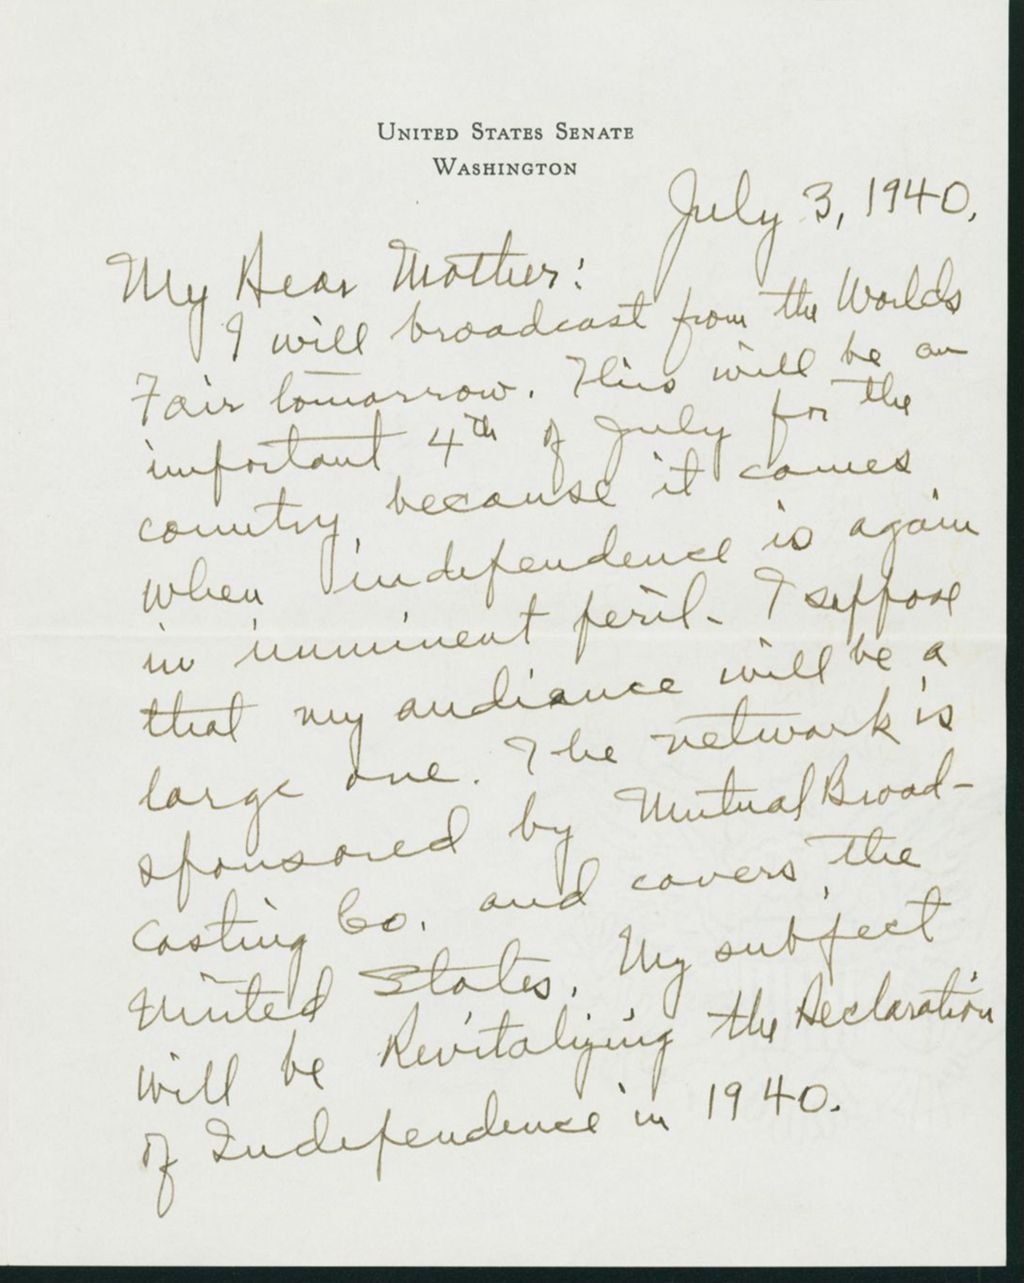 United States Senate
Washington
July 3, 1940.
My Dear Mother:
I will broadcast from the Worlds
Fair tomorrow. This will be an
important 4th of July for the
country because it comes
when independence is again
in imminent peril. I suppose
that my audiance will be a
large one. The network is
sponsored by Mutual Broad-
casting Co. and covers the
United States. My subject
will be Revitalizing the Declaration
of Independence in 1940.